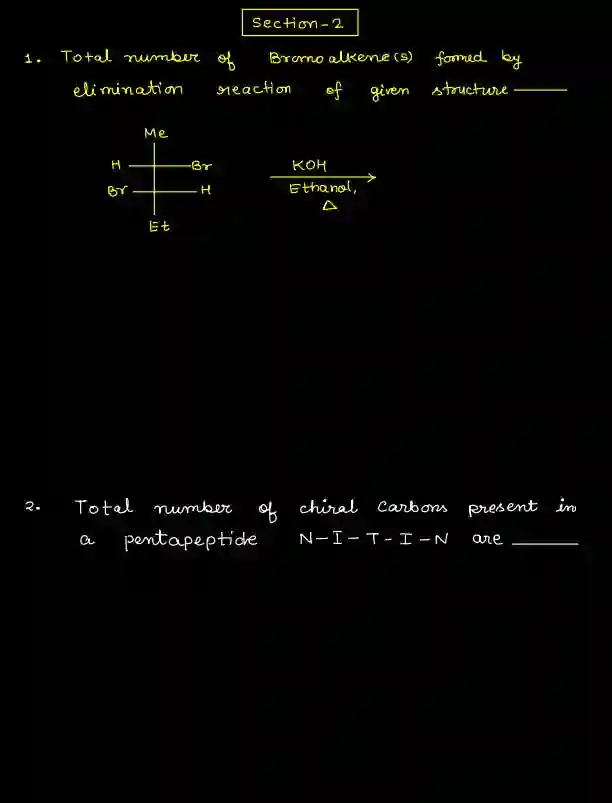 Section-2
1. Total number of Bromoalkene(s) formed by
elimination reaction of given structure
Me
H Br KOH
Br H Ethanol,
Δ
Et
2. Total number of chiral carbons present in
a pentapeptide N-I-T-I-N are